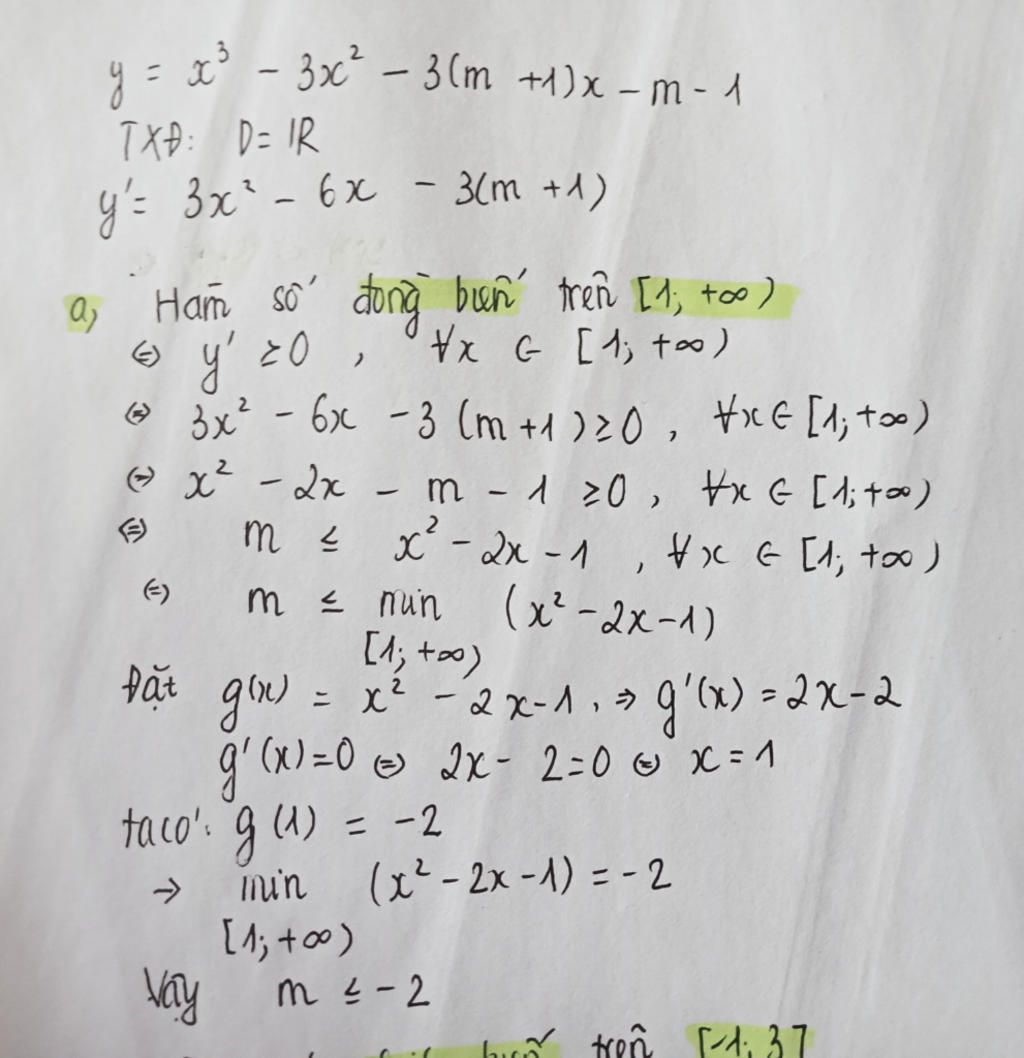 y = x³ - 3x² - 3(m +1)x - m - 1
TXĐ: D = ℝ
y' = 3x² - 6x - 3(m +1)
a, Hàm số đồng biến trên [1; +∞)
⇔ y' ≥ 0 , ∀x ∈ [1; +∞)
⇔ 3x² - 6x - 3 (m +1) ≥ 0 , ∀x ∈ [1; +∞)
⇔ x² - 2x - m - 1 ≥ 0 , ∀x ∈ [1; +∞)
⇔ m ≤ x² - 2x - 1 , ∀x ∈ [1; +∞)
⇔ m ≤ min (x² - 2x - 1)
[1; +∞)
Đặt g(x) = x² - 2x - 1 , ⇒ g'(x) = 2x - 2
g'(x) = 0 ⇔ 2x - 2 = 0 ⇔ x = 1
ta có: g (1) = -2
→ min (x² - 2x - 1) = -2
[1; +∞)
Vậy m ≤ -2
biến trên [-1; 3]